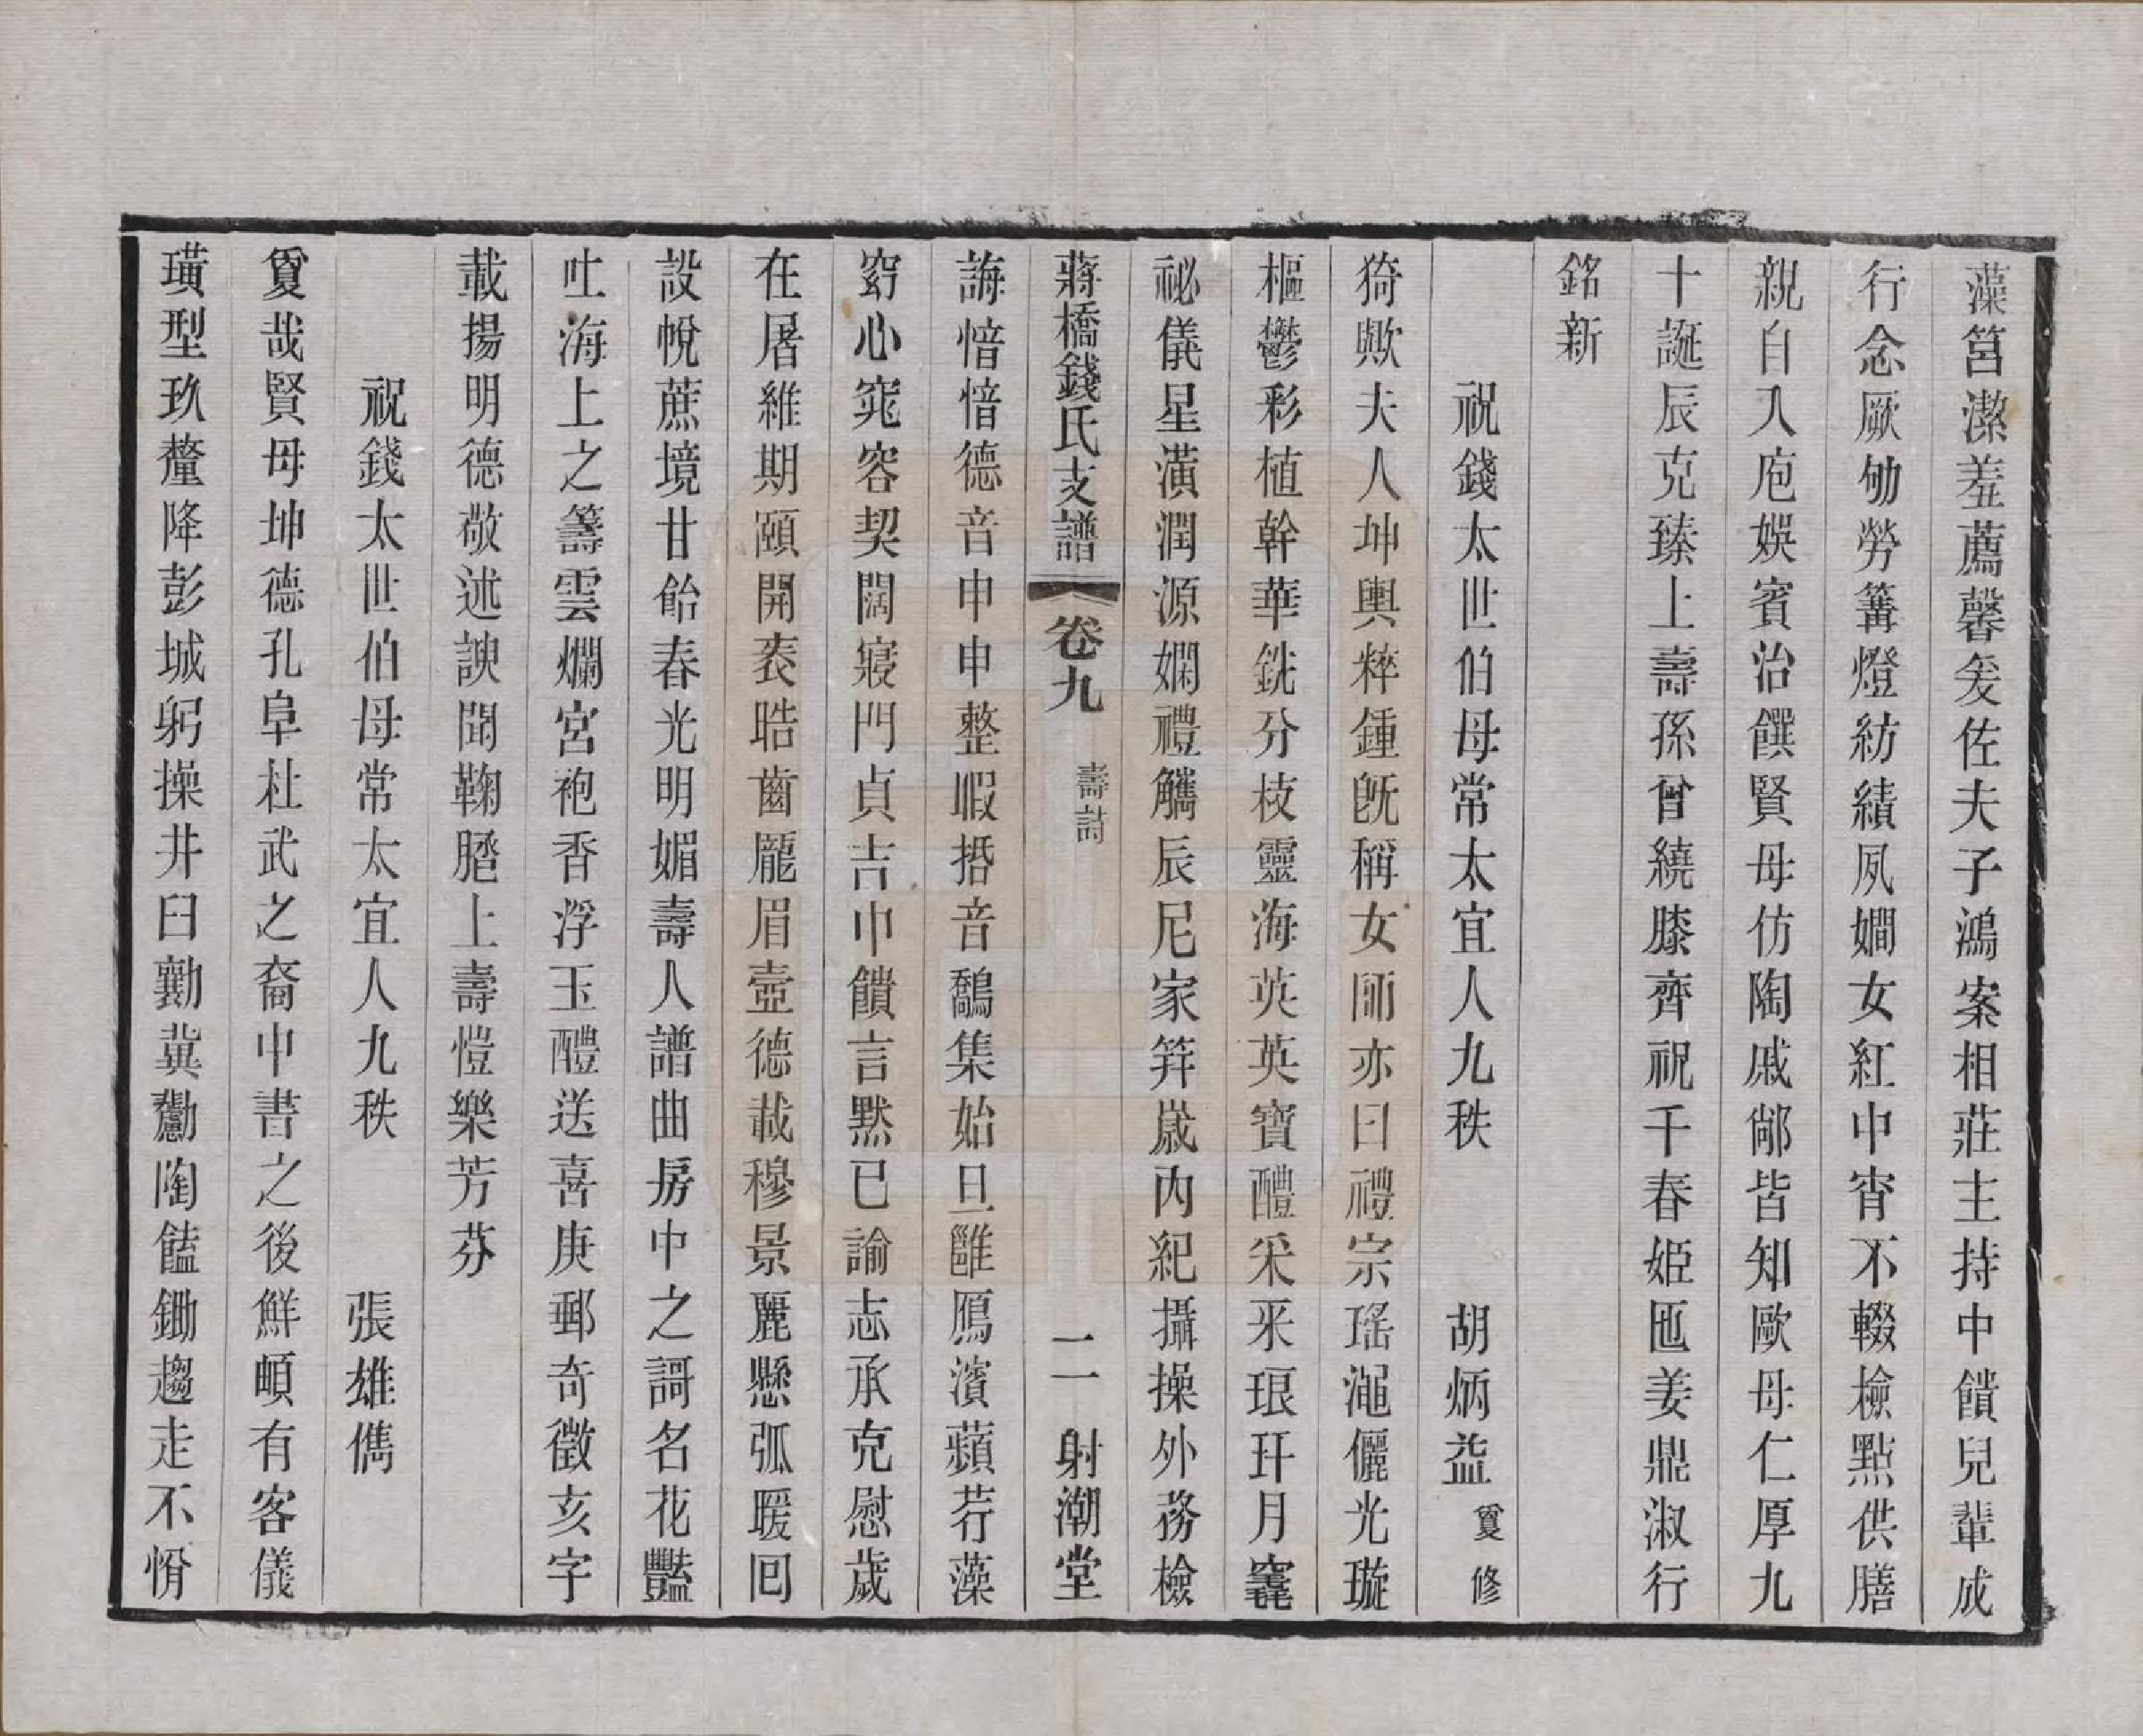 藻筥潔羞薦馨矣佐夫子鴻案相莊主持中饋兒輩成
行念厥劬勞篝燈紡績夙嫺女紅中宵不輟檢點供膳
親自入庖娛賓治饌賢母仿陶戚鄰皆知歐母仁厚九
十誕辰克臻上壽孫曾繞膝齊祝千春姬匜姜鼎淑行
銘新
祝錢太世伯母常太宜人九秩 胡炳益 敻修
猗歟夫人坤輿粹鍾旣稱女師亦曰禮宗瑤澠儷光璇
樞鬱彩植幹華銑分枝靈海英英寶醴采采琅玕月竁
祕儀星潢潤源嫻禮觿辰尼家笄歲內紀攝操外務檢
蔣橋錢氏支譜 卷九 壽詩 二 射潮堂
誨愔愔德音申申整暇捂音鷸集始旦雝鴈濱蘋荇藻
窈心窕容契闊寢門貞吉巾饋言默已諭志承克慰歲
在屠維期頤開袠晧齒龐眉壺德載穆景麗懸弧暖回
設帨蔗境甘飴春光明媚壽人譜曲房中之謌名花豔
吐海上之籌雲爛宮袍香浮玉醴送喜庚郵奇徵亥字
載揚明德敬述諛聞鞠䐛上壽愷樂芳芬
祝錢太世伯母常太宜人九秩 張雄儁
敻哉賢母坤德孔阜杜武之裔中書之後鮮㡌有客儀
璜型玖釐降彭城躬操井臼勷冀勸陶饁鋤趨走不愶